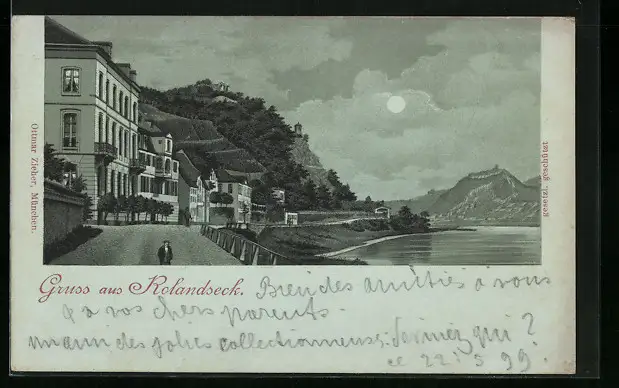 Ottmar Zieher, München.
gesetzl. geschützt
Gruss aus Rolandseck.
Bien des amitiés à vous
& à vos chers parents.
un des jolies collectionneurs: Devinez qui?
ce 22.3.99.